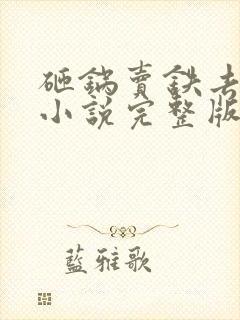 砸鍋賣鉄去
小說完整版
藍雅歌